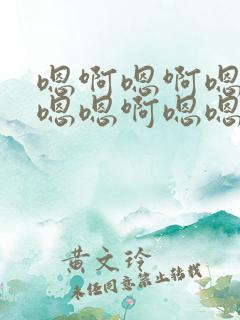 嗯啊嗯啊嗯
嗯嗯啊嗯嗯
黄文玲
未经同意禁止转载